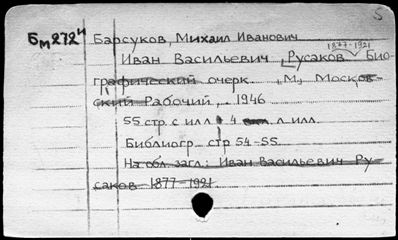 Бм272ч Барсуков, Михаил Иванович
1877-1921
Иван Васильевич Русаков Био-
графический очерк. М, Москов-
ский Рабочий, 1946
55 стр. с илл. 4 л. илл.
Библиогр. стр 54-55.
На обл. загл.: Иван Васильевич Ру
саков 1877-1921.